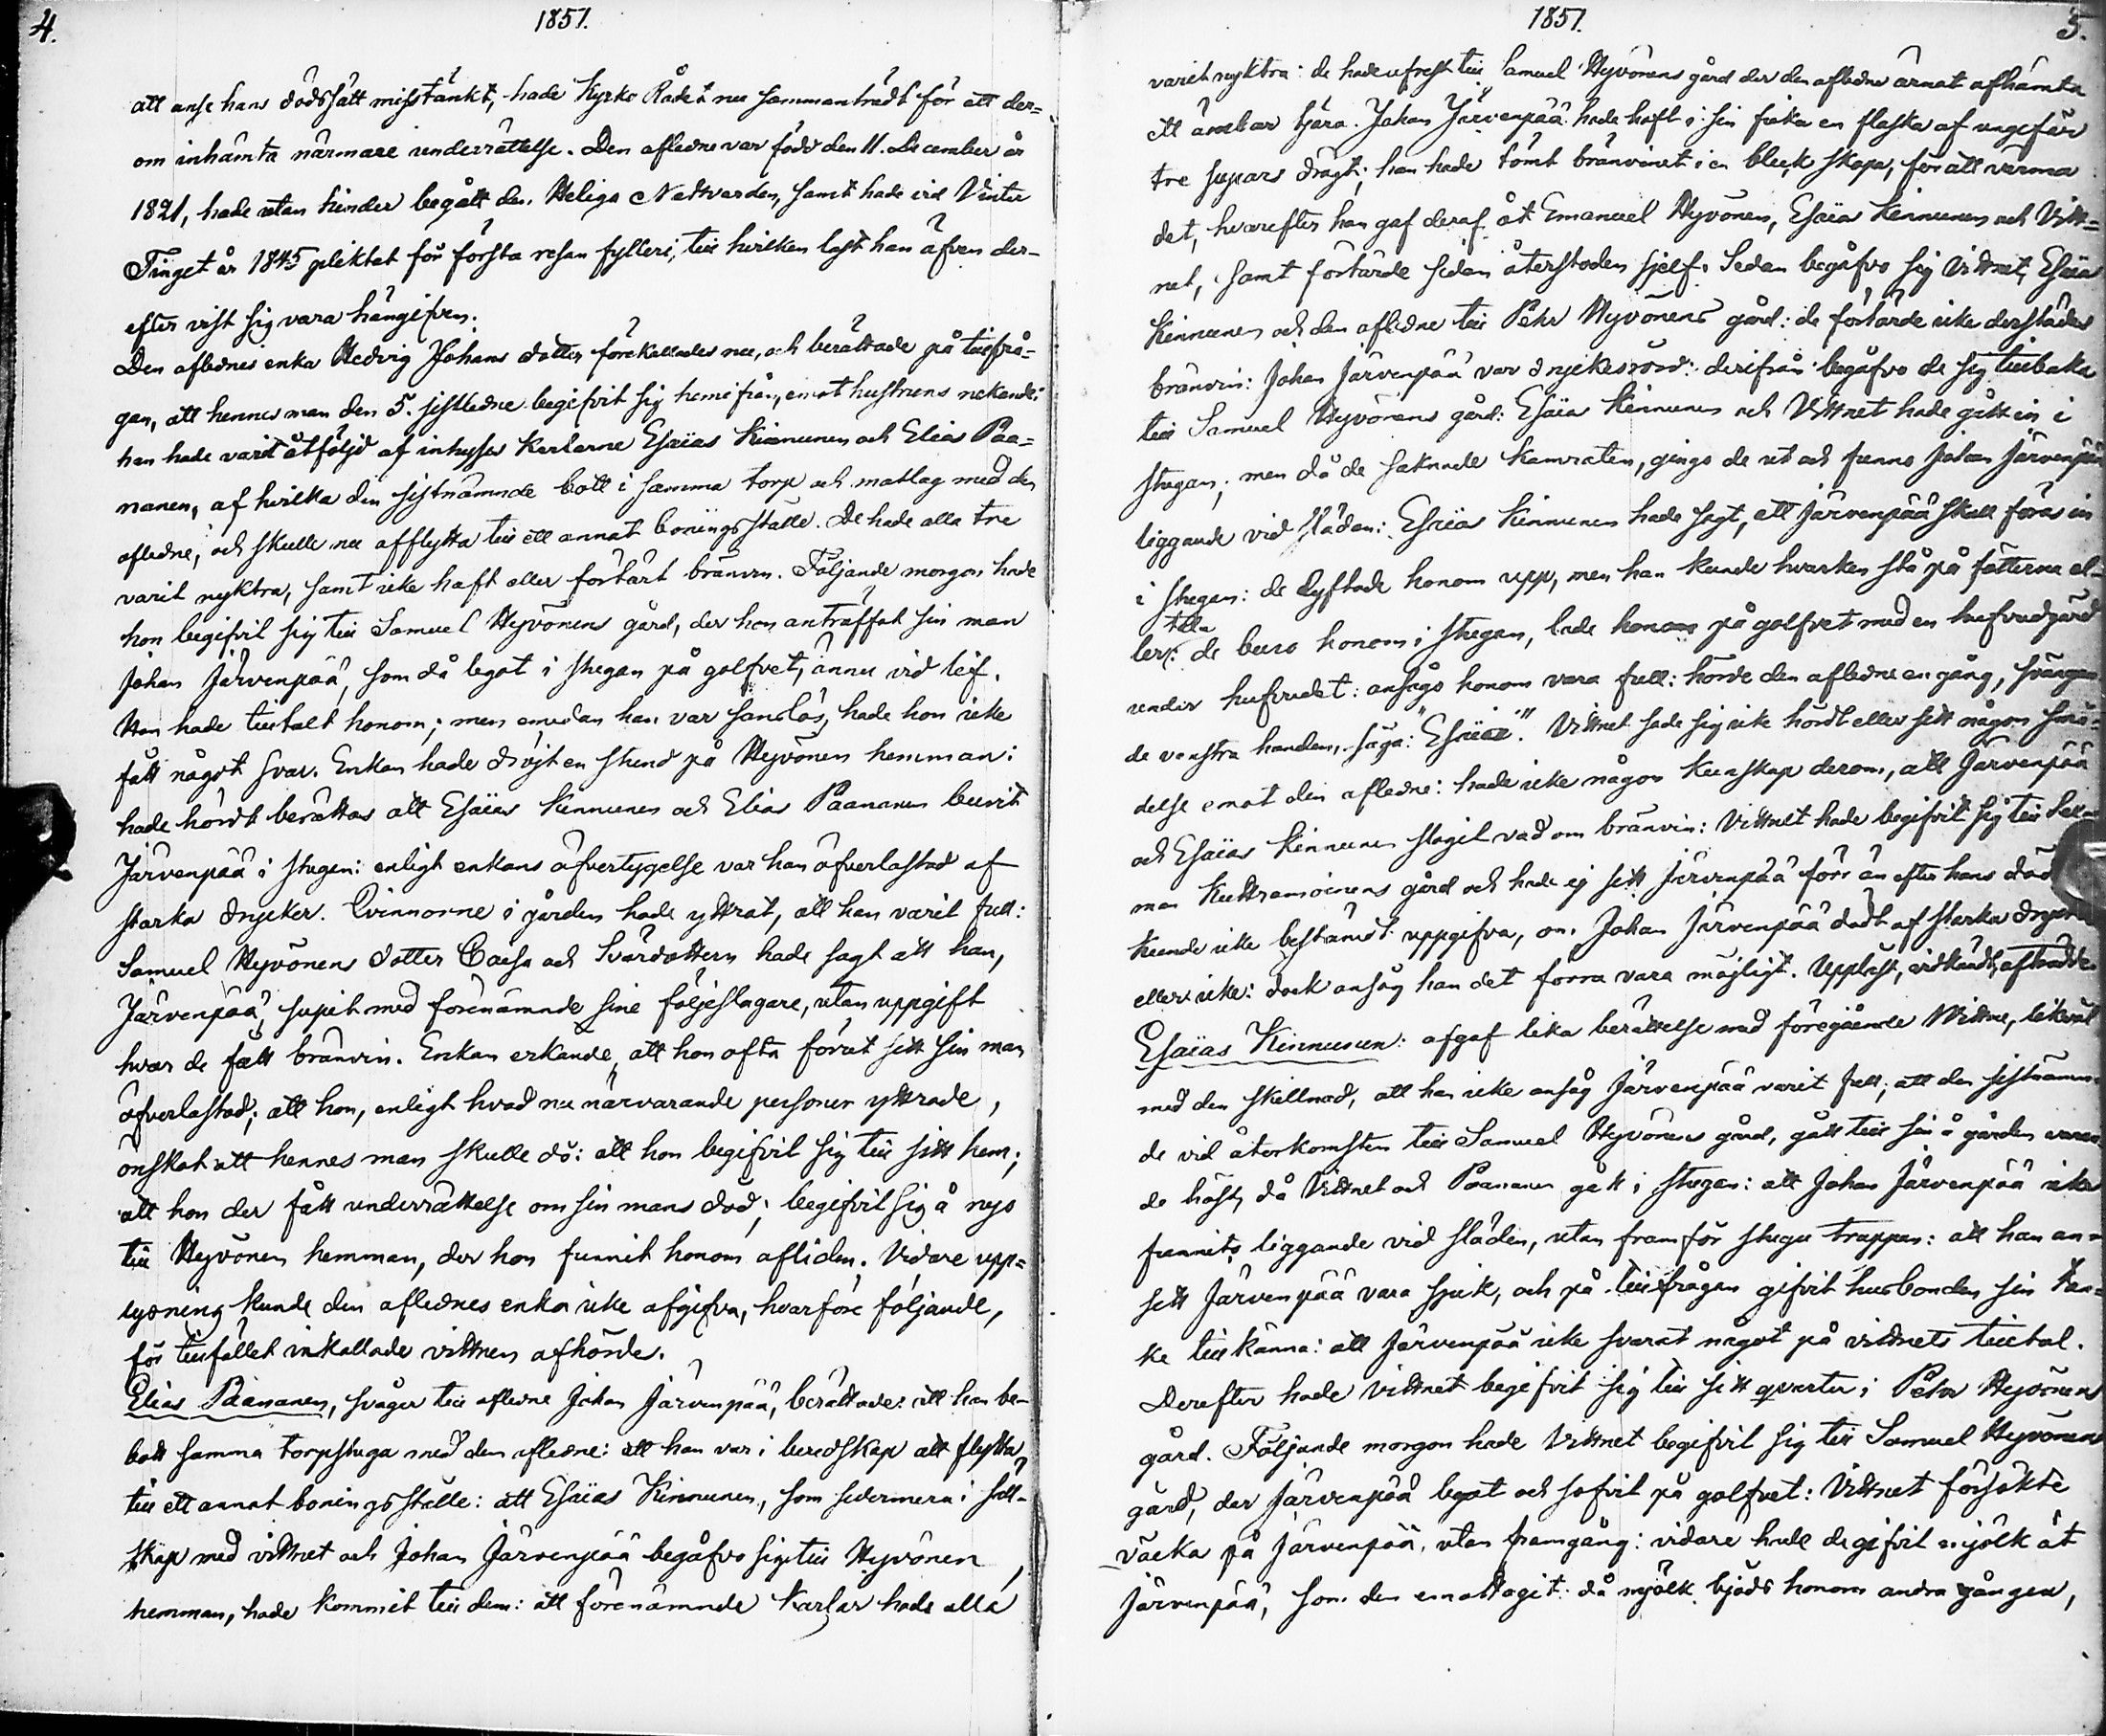 4.
1851.
att anse hans dödssätt misstänkt, hade Kyrko Rådet nu sammanträdt för att der=
om inhämta närmare underrättelse. Den aflednevar född den 11. December år
1821, hade utan hinder begått den Heliga Nattvarden, samt hade vid Vinter
Tinget år 1845 pliktat för första resan fylleri, till hvilken last han äfven der-
efter vist sig vara hängifven.
Den aflednes enka Hedvig Johans dotter förekallades nu, och berättade på tillfrå=
gan, att hennes man den 5. sistledne begifvit sig hemifrån, emot hustruns nekande:
han hade varit åtföljd af inhyses Karlarne Esaias Kinnunen och Elias Paa=
nanen, af hvilka den sistnämnde bott i samma torp och matlag med den
afledne, och skulle nu afflytta till ett annat boningsställe. De hade alla tre
varit nyktra, samt icke haft eller förtärt bränvin. Följande morgon hade
hon begifvit sig till Samuel Hyvönens gård, der hon anträffat sin man
Johan Järvenpää, som då legat i stugan på golfvet, ännu vid lif.
Hon hade tilltalt honom; men emedan han var sanslös, hade hon icke
fått något svar. Enkan hade dröjt en stund på Hyvönen hemman:
hade hördt berättas att Esaias Kinnunen och Elias Paananen burit
Järvenpää i stugan: enligt enkans öfvertygelse var han öfverlastad af
starka drycker. Qvinnorne i gården hade yttrat, att han varit full:
Samuel Hyvönens dotter Caisa och Svärdottern hade sagt att han,
Järvenpää, supit med förenämnde sine följeslagare, utan uppgift
hvar de fått bränvin. Enkan erkände, att hon ofta förut sett sin man
öfverlastad; att hon, enligt hvad nu närvarande personer yttrade,
önskat att hennes man skulle dö: att hon begifvit sig till sitt hem;
att hon der fått underrättelse om sin mans död; begifvit sig å nyo
till Hyvönen hemman, der hon funnit honom afliden. Vidare upp=
lysning kunde den aflednes enka icke afgifva, hvarföre följande,
för tillfället inkallade vittnen afhördes.
Elias Paananen, svåger till afledne Johan Järvenpää, berättade: att han be-
bott samma torpstuga med den afledne: att han var i beredskap att flytta
till ett annat boningsställe: att Esaias Kinnunen, som sedermera i säll-
skap med vittnet och Johan Järvenpää begåfvo sig till Hyvönen
hemman, hade kommit till dem: att förenämnde Karlar hade alla
1851.
5.
varit nyktra: de hade afrest till Samuel Hyvönens gård der den afledne ärnat afhämta
ett ämbar tjära. Johan Järvenpää hade haft i sin ficka en flaska af ungefär
tre supars drägt; han hade tömt bränvinet i en bleck skopa, för att värma
det, hvarefter han gaf deraf åt Emanuel Hyvönen, Esaia Kinnunen och Vitt=
net, samt förtärde sedan återstoden sjelf. Sedan begåfvo sig Vittnet, Esaia
Kinnunen och den afledne till Pehr Hyvönens gård: de förtärde icke derstädes
bränvin: Johan Järvenpää var dryckesrörd: derifrån begåfvo de sig tillbaka
till Samuel Hyvönens gård: Esaia Kinnunen och Vittnet hade gått in i
stugan; men då de saknade kamraten, gingo de ut och funno Johan Järvenpää
liggande vid släden: Esaias Kinnunen hade sagt, att Järvenpää skall föras in
i stugan: de lyftade honom upp, men han kunde hvarken stå på fötterna el-
tala
ler: de buro honom i stugan, lade honom på golfvet med en hufvudgärd
under hufvudet: ansågo honom vara full: hörde den afledne en gång, svängan
de venstra handen, säga: "Esaia". Vittnet sade sig icke hördt eller sett någon små=
delse emot den afledne: hade icke någon kunskap derom, att Järvenpää
och Esaias Kinnunen slagit vad om bränvin: Vittnet hade begifvit sig till
man Kuttramoinens gård och hade ej sett Järvenpää förr än efter hans död
kunde icke bestämdt uppgifva, om Johan Järvenpää dödt af starka
eller icke: dock ansåg han det förra vara möjligt. Uppläst, vidkändt, afträdde.
Esaias Kinnunen: afgaf lika berättelse med föregående Vittne, likväl
med den skillnad, att han icke ansåg Järvenpää varit full; att den sistnämn-
de vid återkomsten till Samuel Hyvönens gård, gått till sin å gården varan
de häst, då Vittnet och Paananen gått i stugan: att Johan Järvenpää icke
funnits liggande vid släden, utan framför stugu trappan: att han an=
sett Järvenpää vara sjuk, och på tillfrågan gifvit husbonden sin tan=
ke till känna: att Järvenpää icke svarat något på vittnets tilltal.
Derefter hade Vittnet begifvit sig till sitt qvarter i Pehr Hyvönens
gård. Följande morgon hade Vittnet begifvit sig till Samuel Hyvönens
gård, der Järvenpää legat och sofvit på golfvet: Vittnet försökte
väcka på Järvenpää, utan framgång: vidare hade de gifvit mjölk åt
Järvenpää, som den emottagit: då mjölk bjöds honom andra gången,